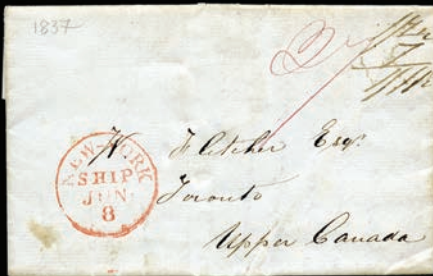 1837
NEW-YORK
SHIP
JUN
8
H Fletcher Esqr.
Toronto
Upper Canada